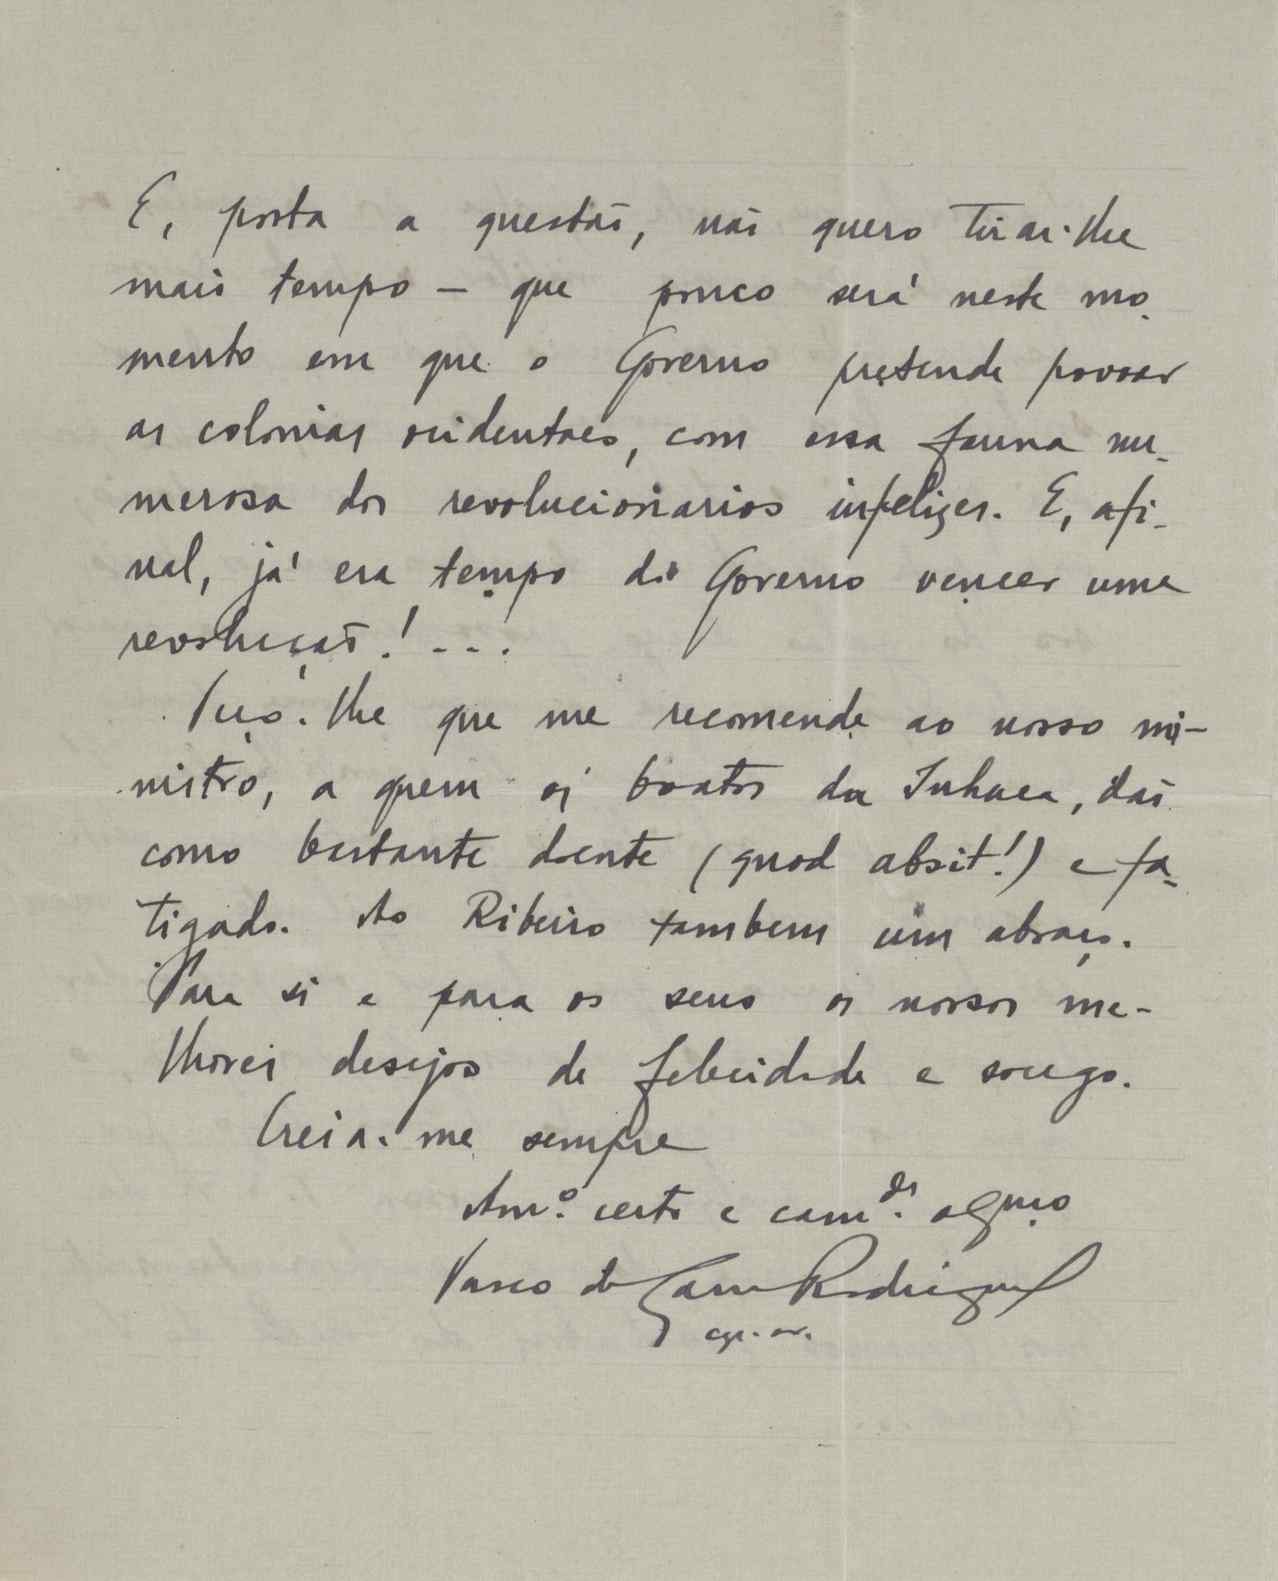 E, posta a questão, não quero tirar-lhe
mais tempo – que pouco será neste mo-
mento em que o Governo pretende povoar
as colonias ocidentaes, com essa fauna nu-
merosa dos revolucionarios infelizes. E, afi-
nal, já era tempo do Governo vencer uma
revolução! ...
Peço-lhe que me recomende ao nosso mi-
nistro, a quem os boatos da Inhaca, dão
como bastante doente (quod absit!) e fa-
tigado. Ao Ribeiro tambem um abraço.
Para si e para os seus os nossos me-
lhores desejos de felicidade e socego.
Creia-me sempre
Am.º certo e cam.da
Vasco da Gama Rodrigues